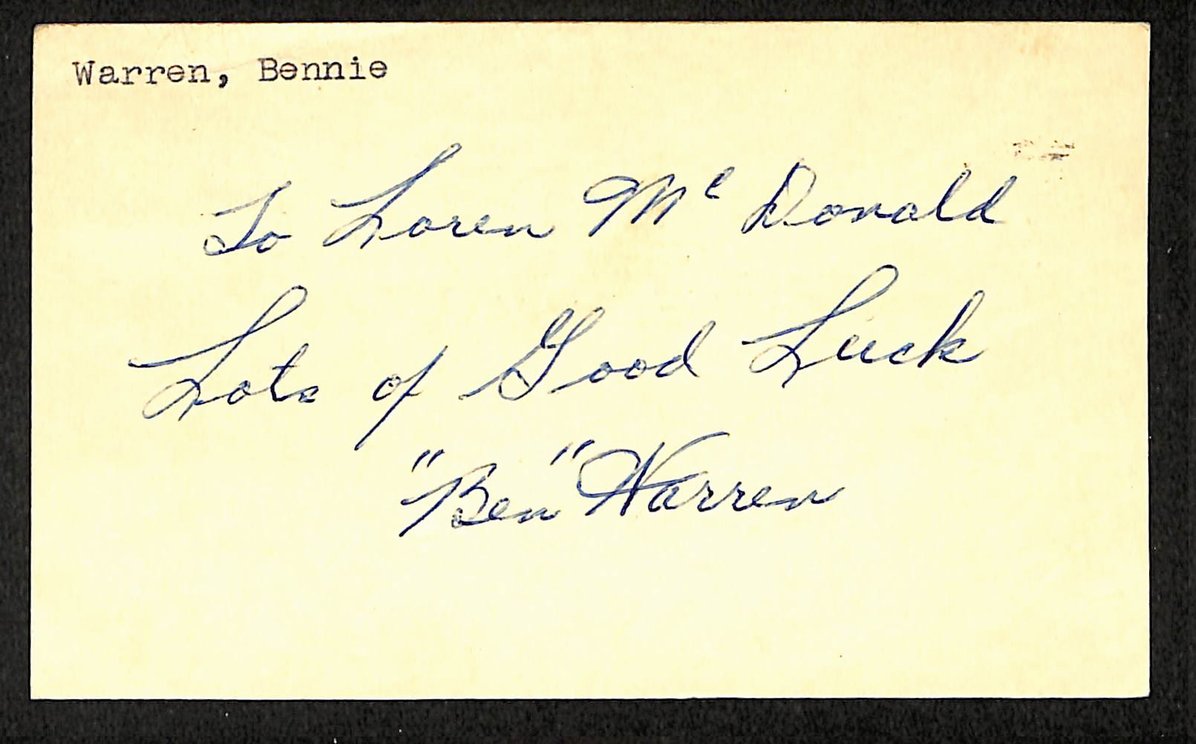 Warren, Bennie
To Loren Mc Donald
Lots of Good Luck
"Ben" Warren